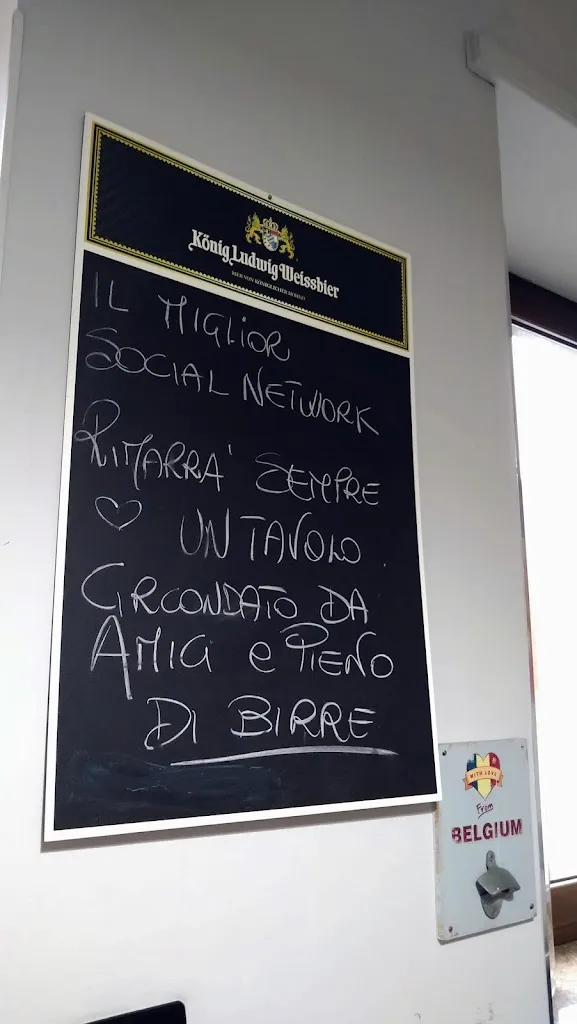 König Ludwig Weissbier
BIER VON KÖNIGLICHER HOHEIT
IL MIGLIOR
SOCIAL NETWORK
RIMARRA' SEMPRE
♡ UN TAVOLO
CIRCONDATO DA
AMICI e PIENO
DI BIRRE
WITH LOVE
From
BELGIUM